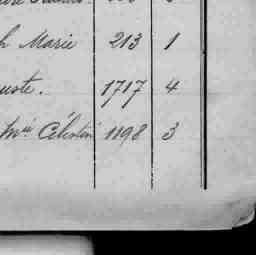 h Marie 213 1
uste. 1717 4
Mie Célestin 1898 3